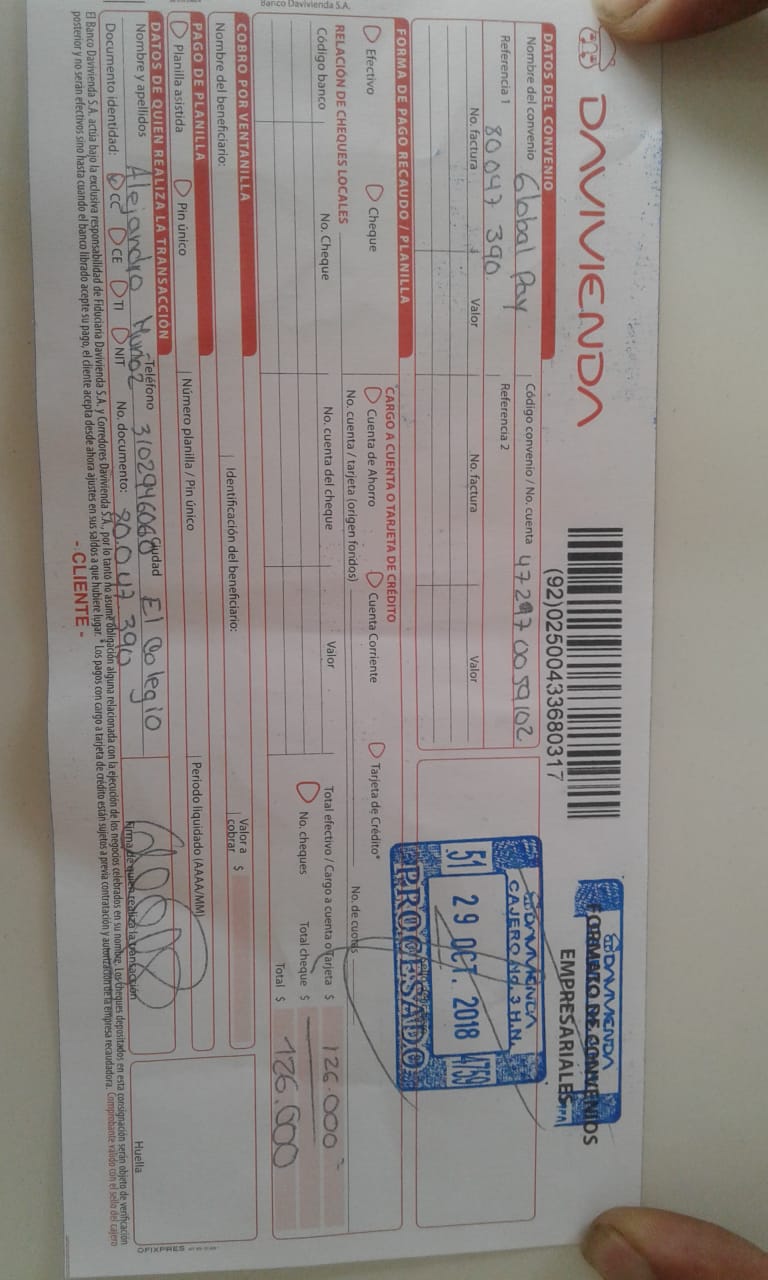 DAVIVIENDA
(92)02500433680317
DAVIVIENDA
FORMATO DE CONVENIOS
EMPRESARIALES
DATOS DEL CONVENIO
Nombre del convenio Global Pay Código convenio / No. cuenta 4729700 59102
Referencia 1 80047 390 Referencia 2
No. factura Valor No. factura Valor
DAVIVIENDA
CAJERO No. 3 H.N.
51 29 OCT. 2018 4759
PROCESADO
FORMA DE PAGO RECAUDO / PLANILLA
CARGO A CUENTA O TARJETA DE CRÉDITO
Efectivo Cheque Cuenta de Ahorro Cuenta Corriente Tarjeta de Crédito*
No. cuenta / tarjeta (origen fondos) No. de cuotas
RELACIÓN DE CHEQUES LOCALES
Código banco No. Cheque No. cuenta del cheque Valor
Total efectivo / Cargo a cuenta o Tarjeta $ 126.000
No. cheques Total cheque $
Total $ 126.000
Banco Davivienda S.A.
COBRO POR VENTANILLA
Nombre del beneficiario: Identificación del beneficiario: Valor a cobrar $
PAGO DE PLANILLA
Planilla asistida Pin único Número planilla / Pin único Periodo liquidado (AAAA/MM)
DATOS DE QUIEN REALIZA LA TRANSACCIÓN
Nombre y apellidos Alejandro Muñoz Teléfono 3102946068 Ciudad El Colegio
Documento identidad: CC CE TI NIT No. documento: 80.047 390 Firma de quien realiza la transacción Huella
El Banco Davivienda S.A. actúa bajo la exclusiva responsabilidad de Fiduciaria Davivienda S.A. y Corredores Davivienda S.A., por lo tanto no asume obligación alguna relacionada con la ejecución de los negocios celebrados en su nombre. Los cheques depositados en esta consignación serán objeto de verificación
posterior y no seran efectivos sino hasta cuando el banco librado acepte su pago, el cliente acepta desde ahora ajustes en sus saldos a que hubiere lugar. *Los pagos con cargo a tarjeta de crédito están sujetos a previa contratación y autorización de la empresa recaudadora. Comprobante válido con el sello del cajero
- CLIENTE -
OFIXPRES